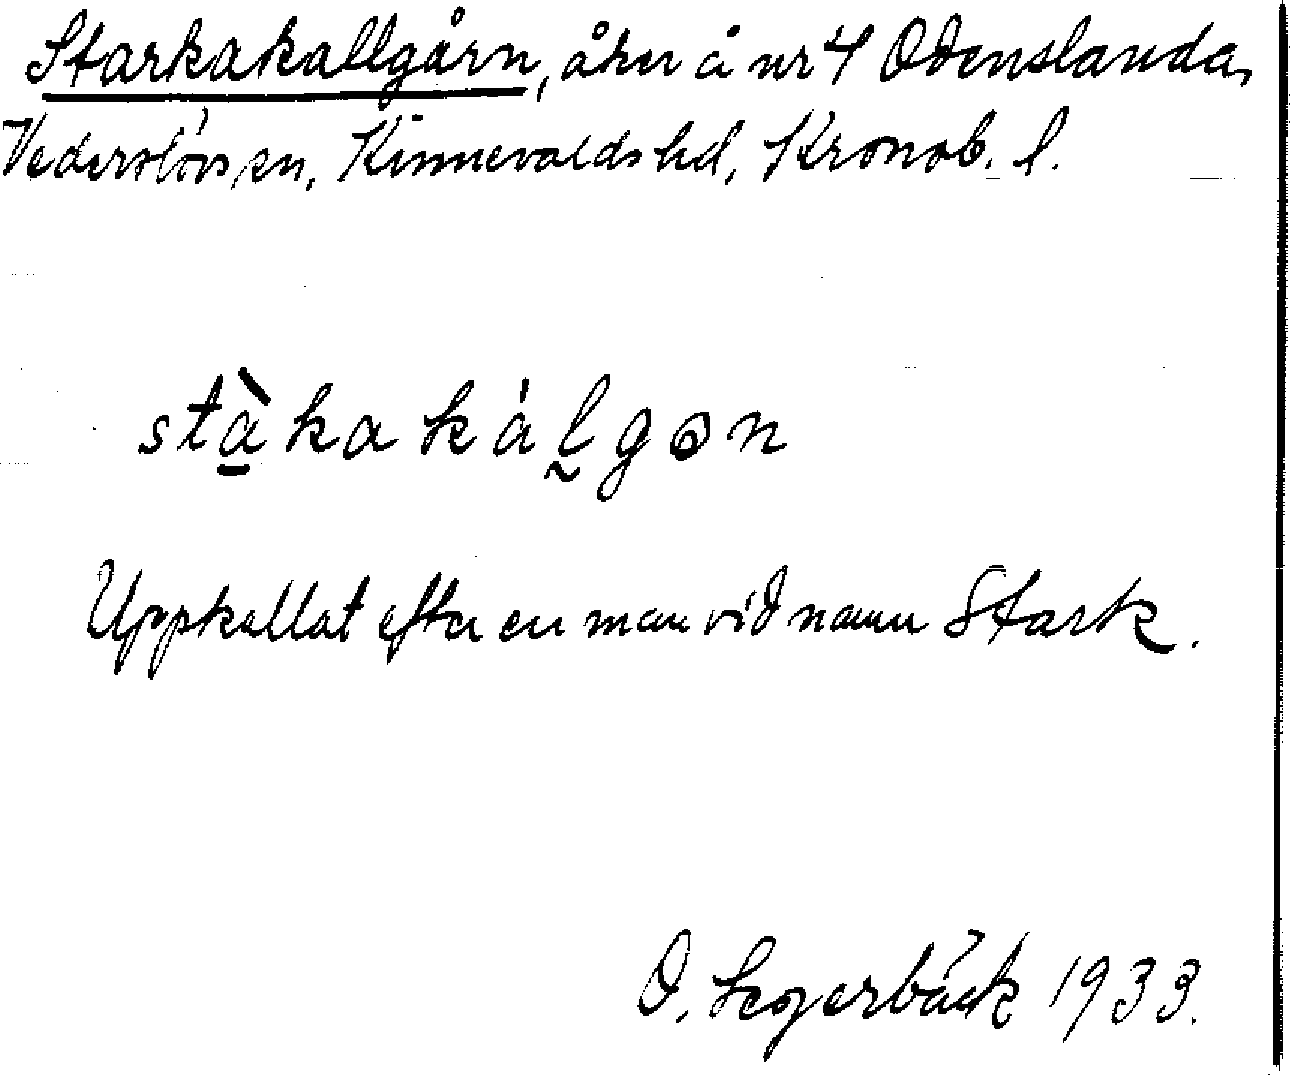 Starkakallgårn, åker å nr 4 Odenslanda,
Vederslövs sn, Kinnevalds hd, Kronob. l.
stàkakálgɔn
Uppkallat efter en man vid namn Stark.
O. Segerbäck 1933.